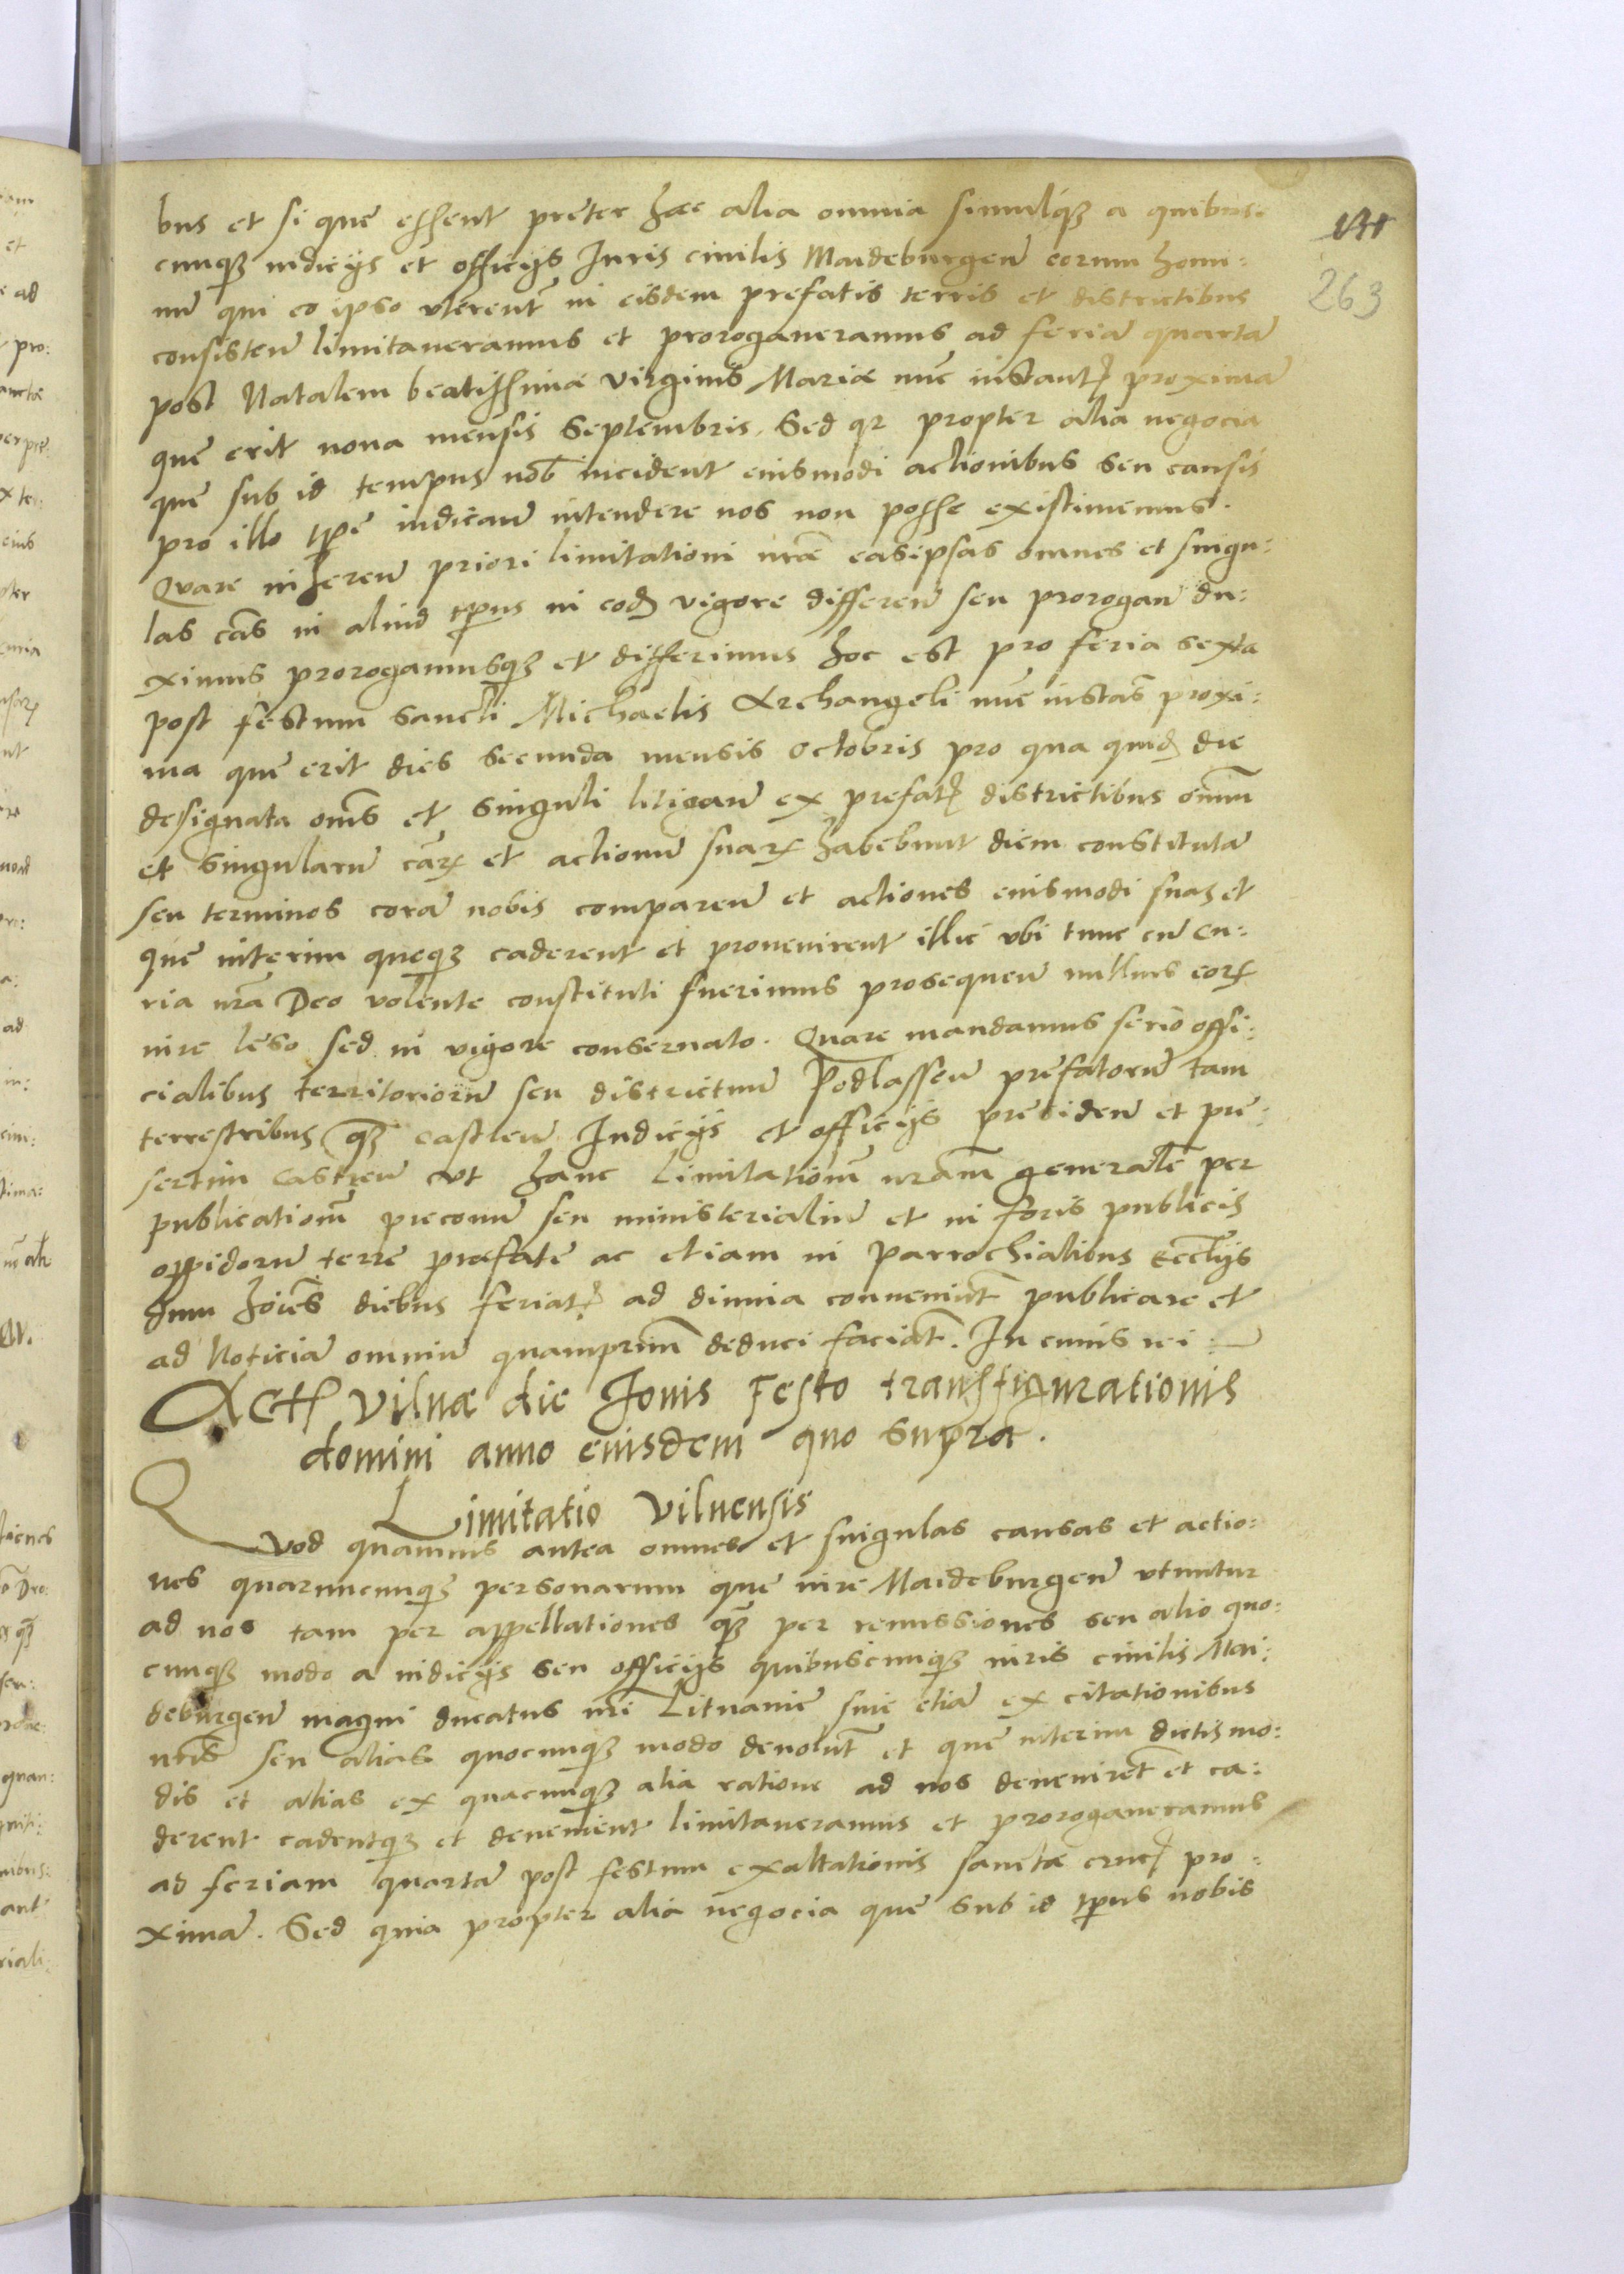 bus et si que essent preter hæc alia omnia simulq3 a quibus:
cunq3 iudicijs et officijs Juris ciuilis Maideburgen̄ eorum homi:
nū qui eo ipso vterent̄ in eisdem prefatis terris et districtibus
consisten̄ limitaueramus et prorogaueramus ad feriā quartā
post Natalem beatissimæ virginis Mariæ nūc instantꝭ proximā
que erit nona mensis Septembris. Sed qr propter alia negocia
que sub id tempus nob̄ incident eiusmodi actionibus seu causis
pro illo tpe iudican̄ intendere nos non posse existimemus.
Quare inheren̄ priori limitationi nr̄æ easipsas omnes et singu:
las cās in aliud tpus in eodꝫ vigore differen̄ seu prorogan̄ du:
ximus prorogamusq3 et differimus hoc est pro feria sexta
post festum Sancti Michaelis Archangeli nūc instāt̄ proxi:
ma que erit dies Secunda mensis Octobris pro qua quidꝫ die
designata oēs et singuli litigan̄ ex prefatꝭ districtibus om̄iū
et singularū cārꝝ et actionū suarꝝ habebunt diem constitutā
seu terminos corā nobis comparen̄ et actiones eiusmodi suas et
que interim queq3 caderent et prouenirent illic vbi tunc cū Cu:
ria nr̄a Deo volente constituti fuerimus prosequen̄ nullius eorꝝ
iure leso sed in vigore conseruato. Quare mandamus serio offi:
cialibus territoriorū seu districtuū Podlassen̄ prefatorū tam
terrestribus q̄3 castren̄ Judicijs et officijs presiden̄ et pre:
sertim Castren̄ vt hanc Limitationē nr̄am generalē per
publicationē preconū seu ministerialiū et in foris publicis
oppidorū terre præfate ac etiam in parrochialibus Ecclijs
dum hoīes diebus feriatꝭ ad diuina conueniūt publicare et
ad Noticiā omniū quamprimū deduci faciāt. In cuius rei :—
Actꝭ Vilnæ die Jouis Festo transfigurationis
domini anno eiusdem quo supra.
Limitatio Vilnensis
Quod quamuis antea omnes et singulas causas et actio:
nes quarumcunq3 personarum que iure Maideburgen̄ vtuntur
ad nos tam per appellationes q̄3 per remissiones seu alio quo:
cunq3 modo a iudicijs seu officijs quibuscunq3 iuris ciuilis Mai:
deburgen̄ magni ducatus nr̄i Lituanie siue etiā ex citationibus
nr̄is seu alias quocunq3 modo deuolut̄ et que interim dictis mo:
dis et alias ex quacunq3 alia ratione ad nos deuenirēt et ca:
derent cadentq3 et deuenient limitaueramus et prorogaueramus
ad feriam quartā post festum exaltationis sanctæ crucꝭ pro:
ximā. Sed quia propter alia negocia que sub id tpus nobis
263